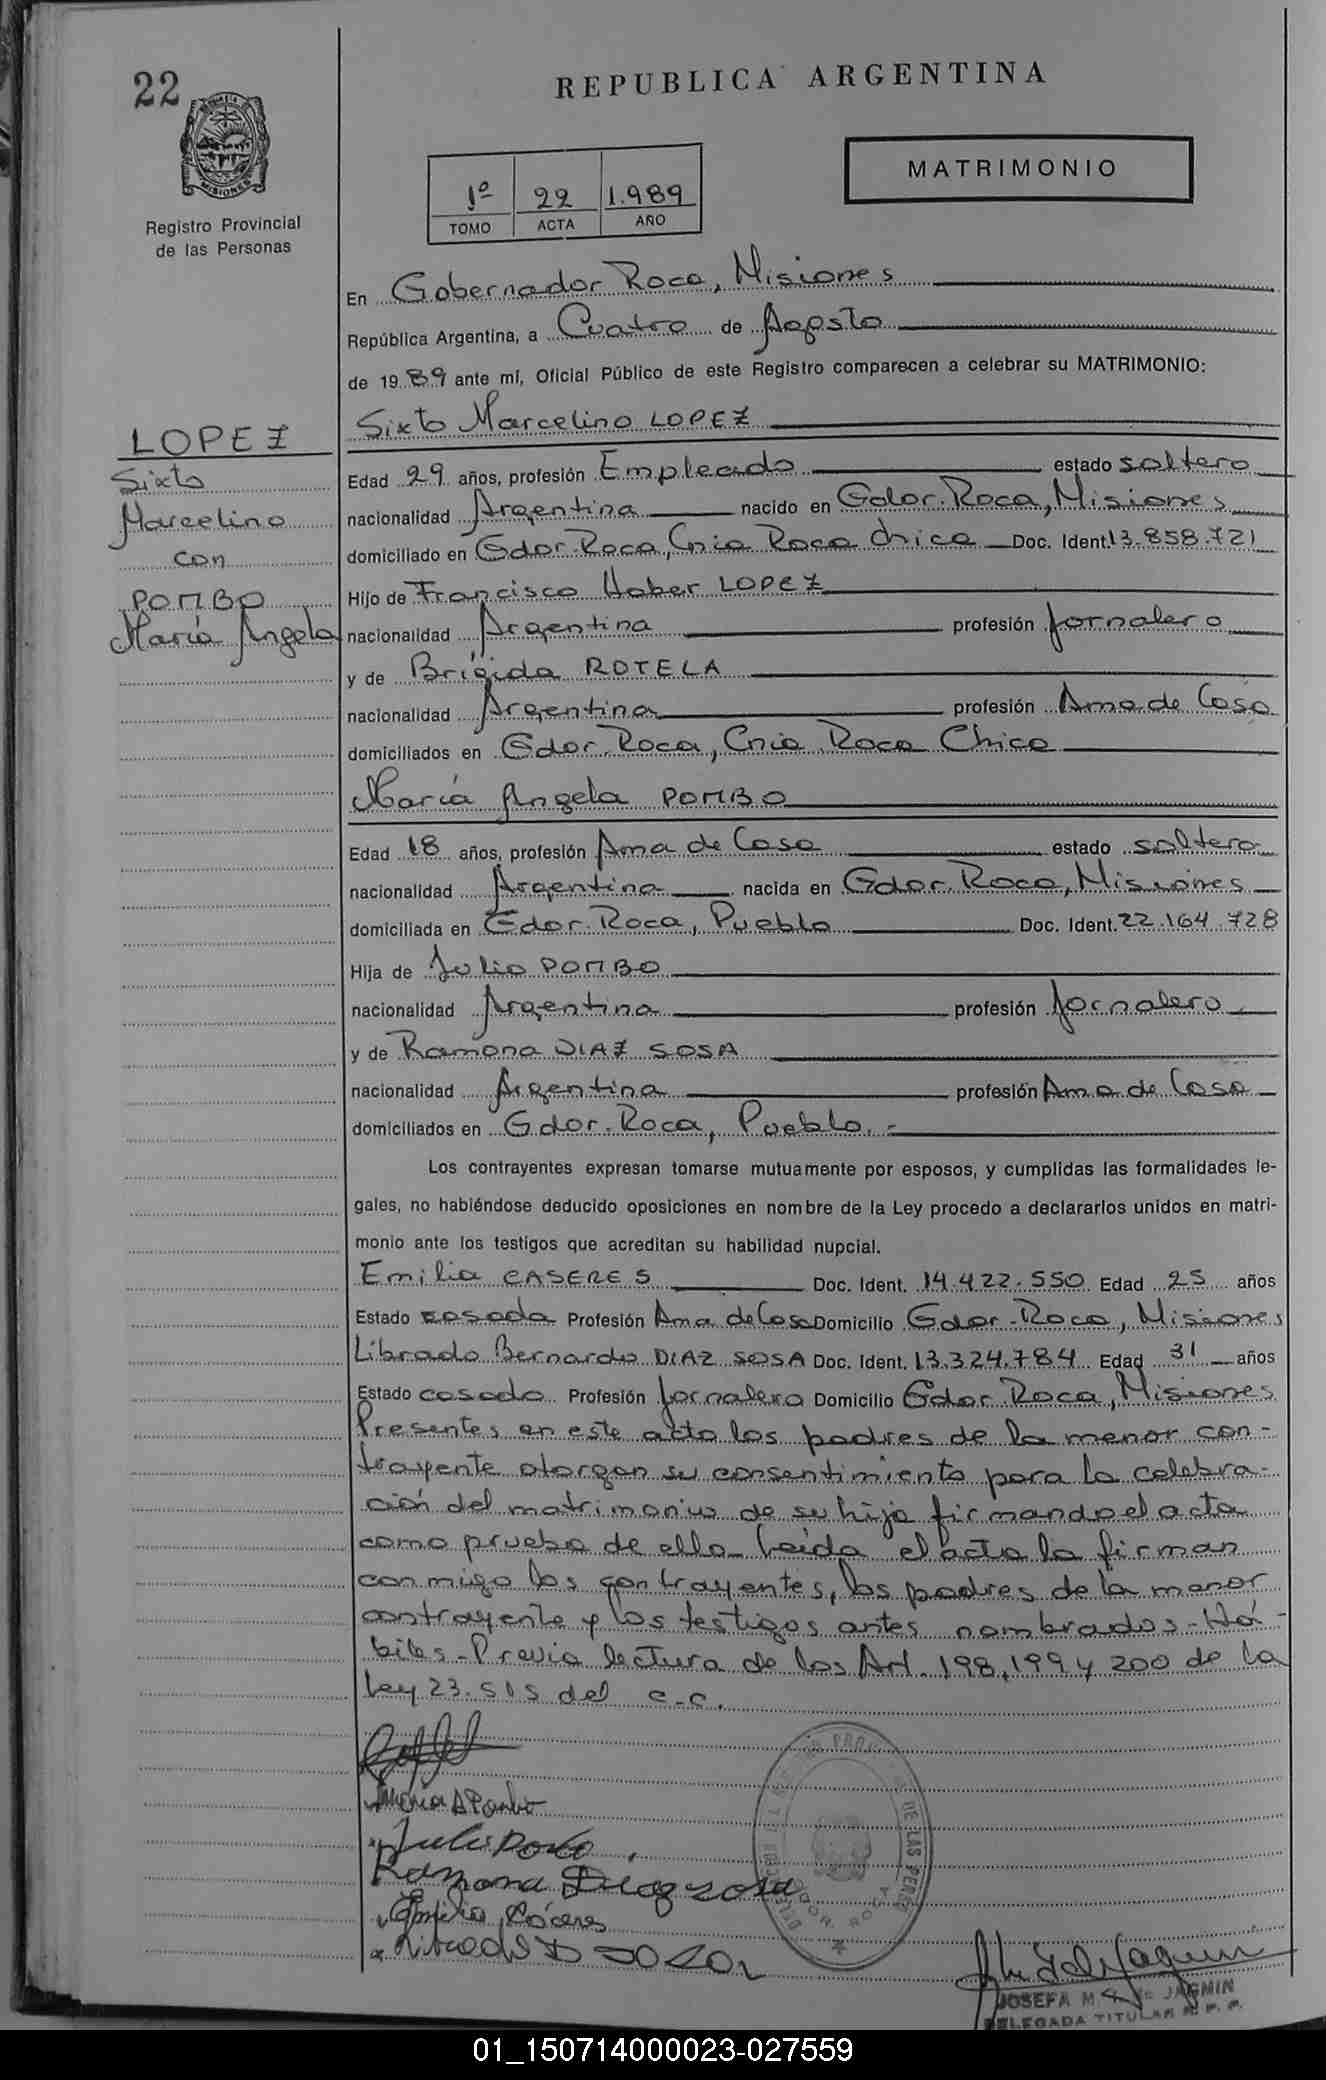 22
REPUBLICA ARGENTINA
MISIONES
Registro Provincial
de las Personas
1º 22 1.989
TOMO ACTA AÑO
MATRIMONIO
En Gobernador Roca, Misiones
República Argentina, a Cuatro de Agosto
de 1989 ante mí, Oficial Público de este Registro comparecen a celebrar su MATRIMONIO:
LOPEZ
Sixto
Marcelino
con
POMBO
María Angela
Sixto Marcelino LOPEZ
Edad 29 años, profesión Empleado estado soltero
nacionalidad Argentina nacido en Gdor. Roca, Misiones
domiciliado en Gdor. Roca, Cnia Roca Chica Doc. Ident. 13.858.721
Hijo de Francisco Haber LOPEZ
nacionalidad Argentina profesión Jornalero
y de Brígida ROTELA
nacionalidad Argentina profesión Ama de Casa
domiciliados en Gdor. Roca, Cnia Roca Chica
María Angela POMBO
Edad 18 años, profesión Ama de Casa estado soltera
nacionalidad Argentina nacida en Gdor. Roca, Misiones
domiciliada en Gdor. Roca, Pueblo Doc. Ident. 22.164.728
Hija de Julio POMBO
nacionalidad Argentina profesión Jornalero
y de Ramona DIAZ SOSA
nacionalidad Argentina profesión Ama de Casa
domiciliados en Gdor. Roca, Pueblo.-
Los contrayentes expresan tomarse mutuamente por esposos, y cumplidas las formalidades le-
gales, no habiéndose deducido oposiciones en nombre de la Ley procedo a declararlos unidos en matri-
monio ante los testigos que acreditan su habilidad nupcial.
Emilia CASERES Doc. Ident. 14.422.550 Edad 25 años
Estado casada Profesión Ama de Casa Domicilio Gdor. Roca, Misiones
Librado Bernardo DIAZ SOSA Doc. Ident. 13.324.784 Edad 31 años
Estado casado Profesión Jornalero Domicilio Gdor. Roca, Misiones
Presentes en este acto los padres de la menor con-
trayente otorgan su consentimiento para la celebra-
ción del matrimonio de su hija firmando el acta
como prueba de ello- Leída el acta la firman
conmigo los contrayentes, los padres de la menor
contrayente y los testigos antes nombrados- Há-
biles- Previa lectura de los Art. 198, 199 y 200 de la
Ley 23.515 del C.C.
María A Pombo
Julio Pombo
Ramona Diaz sosa
Emilia Cáceres
Librado D SOSA
GDOR. ROCA
JOSEFA M. JAGMIN
DELEGADA TITULAR R. P. P.
01_150714000023-027559